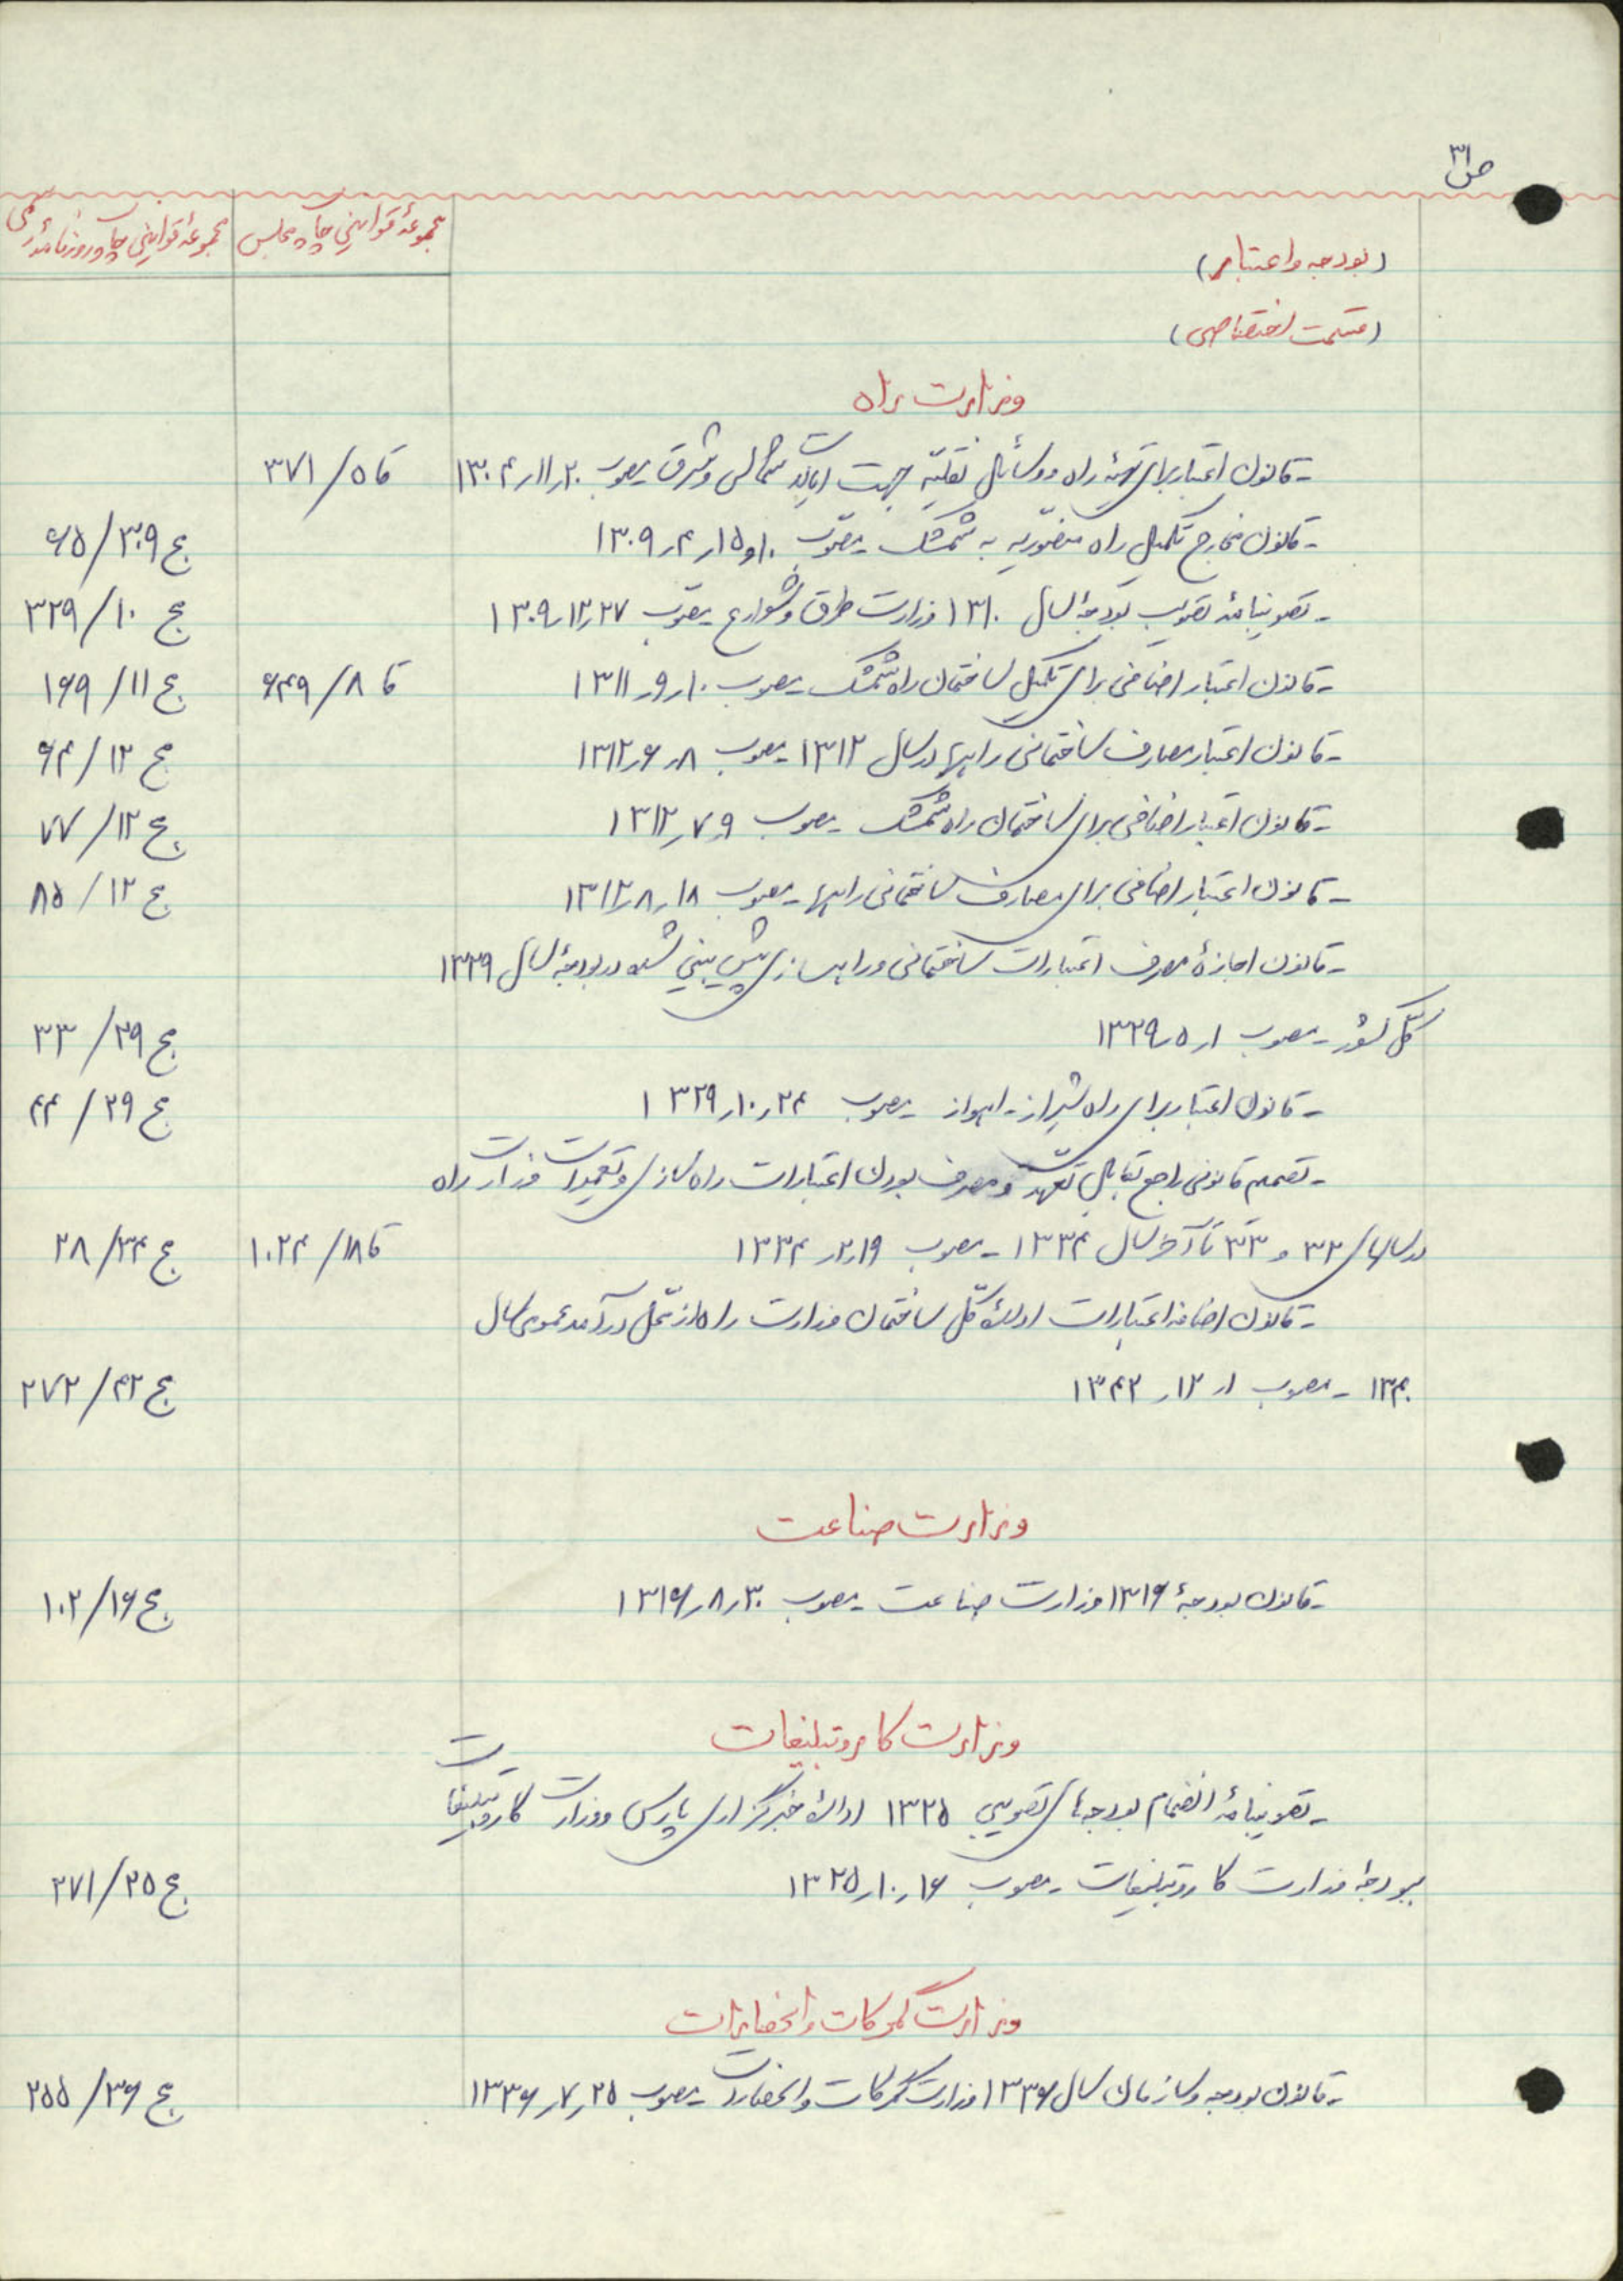 ص ۳۱
مجموعهٔ قوانین چاپ مجلس
مجموعهٔ قوانین چاپ روزنامهٔ رسمی
(بودجه و اعتبار)
(قسمت اختصاصی)
وزارت راه
- قانون اعتبار برای تهیهٔ راه و وسائل نقلیّه جهت ایالات شمالی و شرق - مصوب ۲۰ر۱۱ر۱۳۰۴ قا ۵/۳۷۱
- قانون مخارج تکمیل راه منصوریه به شمشک - مصوّب ۱۰و۱۵ر۴ر۱۳۰۹ ج ۳۰۹/۶۵
- تصویبنامهٔ تصویب بودجهٔ سال ۱۳۱۰ وزارت طرق و شوارع - مصوّب ۲۷ر۱۲ر۱۳۰۹ ج ۱۰/۳۲۹
- قانون اعتبار اضافی برای تکمیل ساختمان راه شمشک - مصوب ۱۰ر۹ر۱۳۱۱ قا ۸/۶۴۹ ج ۱۱/۱۶۹
- قانون اعتبار مصارف ساختمانی راهها در سال ۱۳۱۲ - مصوب ۸ر۶ر۱۳۱۲ ج ۱۲/۶۴
- قانون اعتبار اضافی برای ساختمان راه شمشک - مصوب ۹ر۷ر۱۳۱۲ ج ۱۲/۷۷
- قانون اعتبار اضافی برای مصارف ساختمانی راهها - مصوب ۱۸ر۸ر۱۳۱۲ ج ۱۲/۸۵
- قانون اجازهٔ مصرف اعتبارات ساختمانی و راهسازی پیش بینی شده در بودجهٔ سال ۱۳۲۹
کل کشور - مصوب ۱ر۵ر۱۳۲۹ ج ۲۹/۳۳
- قانون اعتبار برای راه شیراز - اهواز - مصوب ۲۴ر۱۰ر۱۳۲۹ ج ۲۹/۴۴
- تصمیم قانونی راجع بقابل تعهد و مصرف بودن اعتبارات راه سازی و تعمیرات وزارت راه
در سالهای ۳۲ و ۳۳ تا آخر سال ۱۳۳۴ - مصوب ۱۹ر۲ر۱۳۳۴ قا ۱۸/۱۰۲۴ ج ۳۴/۲۸
- قانون اضافه اعتبارات ادارهٔ کلّ ساختمان وزارت راه از محلّ درآمد عمومی سال
۱۳۴۰ - مصوب ۱ر۱۲ر۱۳۴۲ ج ۴۲/۲۷۲
وزارت صناعت
- قانون بودجهٔ ۱۳۱۶ وزارت صناعت - مصوب ۳۰ر۸ر۱۳۱۶ ج ۱۶/۱۰۲
وزارت کار و تبلیغات
- تصویبنامهٔ انضمام بودجه‌های تصویبی ۱۳۲۵ ادارهٔ خبرگزاری پارس و وزارت کار و تبلیغات
ببودجهٔ وزارت کار و تبلیغات - مصوب ۱۶ر۱۰ر۱۳۲۵ ج ۲۵/۲۷۱
وزارت گمرکات و انحصارات
- قانون بودجه و سازمان سال ۱۳۳۶ وزارت گمرکات و انحصارات - مصوب ۲۵ر۷ر۱۳۳۶ ج ۳۶/۲۵۵